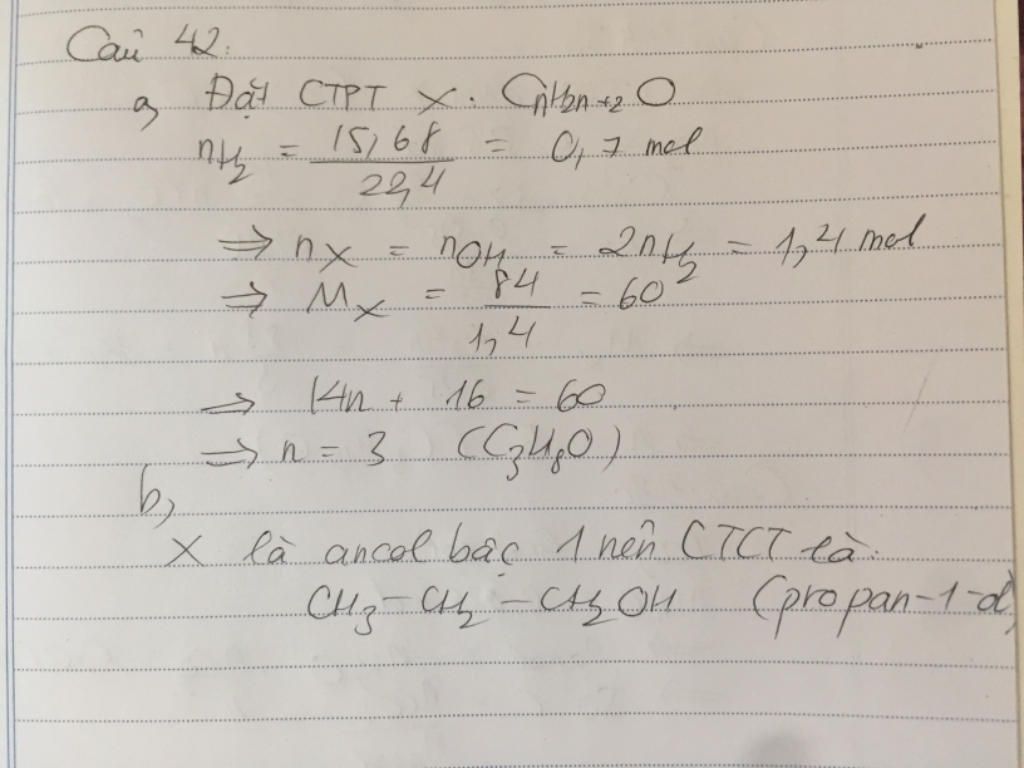 Câu 42:
a, Đặt CTPT X: CnH2n+2O
nH2 = 15,68 / 22,4 = 0,7 mol
⇒ nX = nOH = 2nH2 = 1,4 mol
⇒ MX = 84 / 1,4 = 60
⇒ 14n + 16 = 60
⇒ n = 3 (C3H8O)
b,
X là ancol bậc 1 nên CTCT là:
CH3-CH2-CH2OH (propan-1-ol)